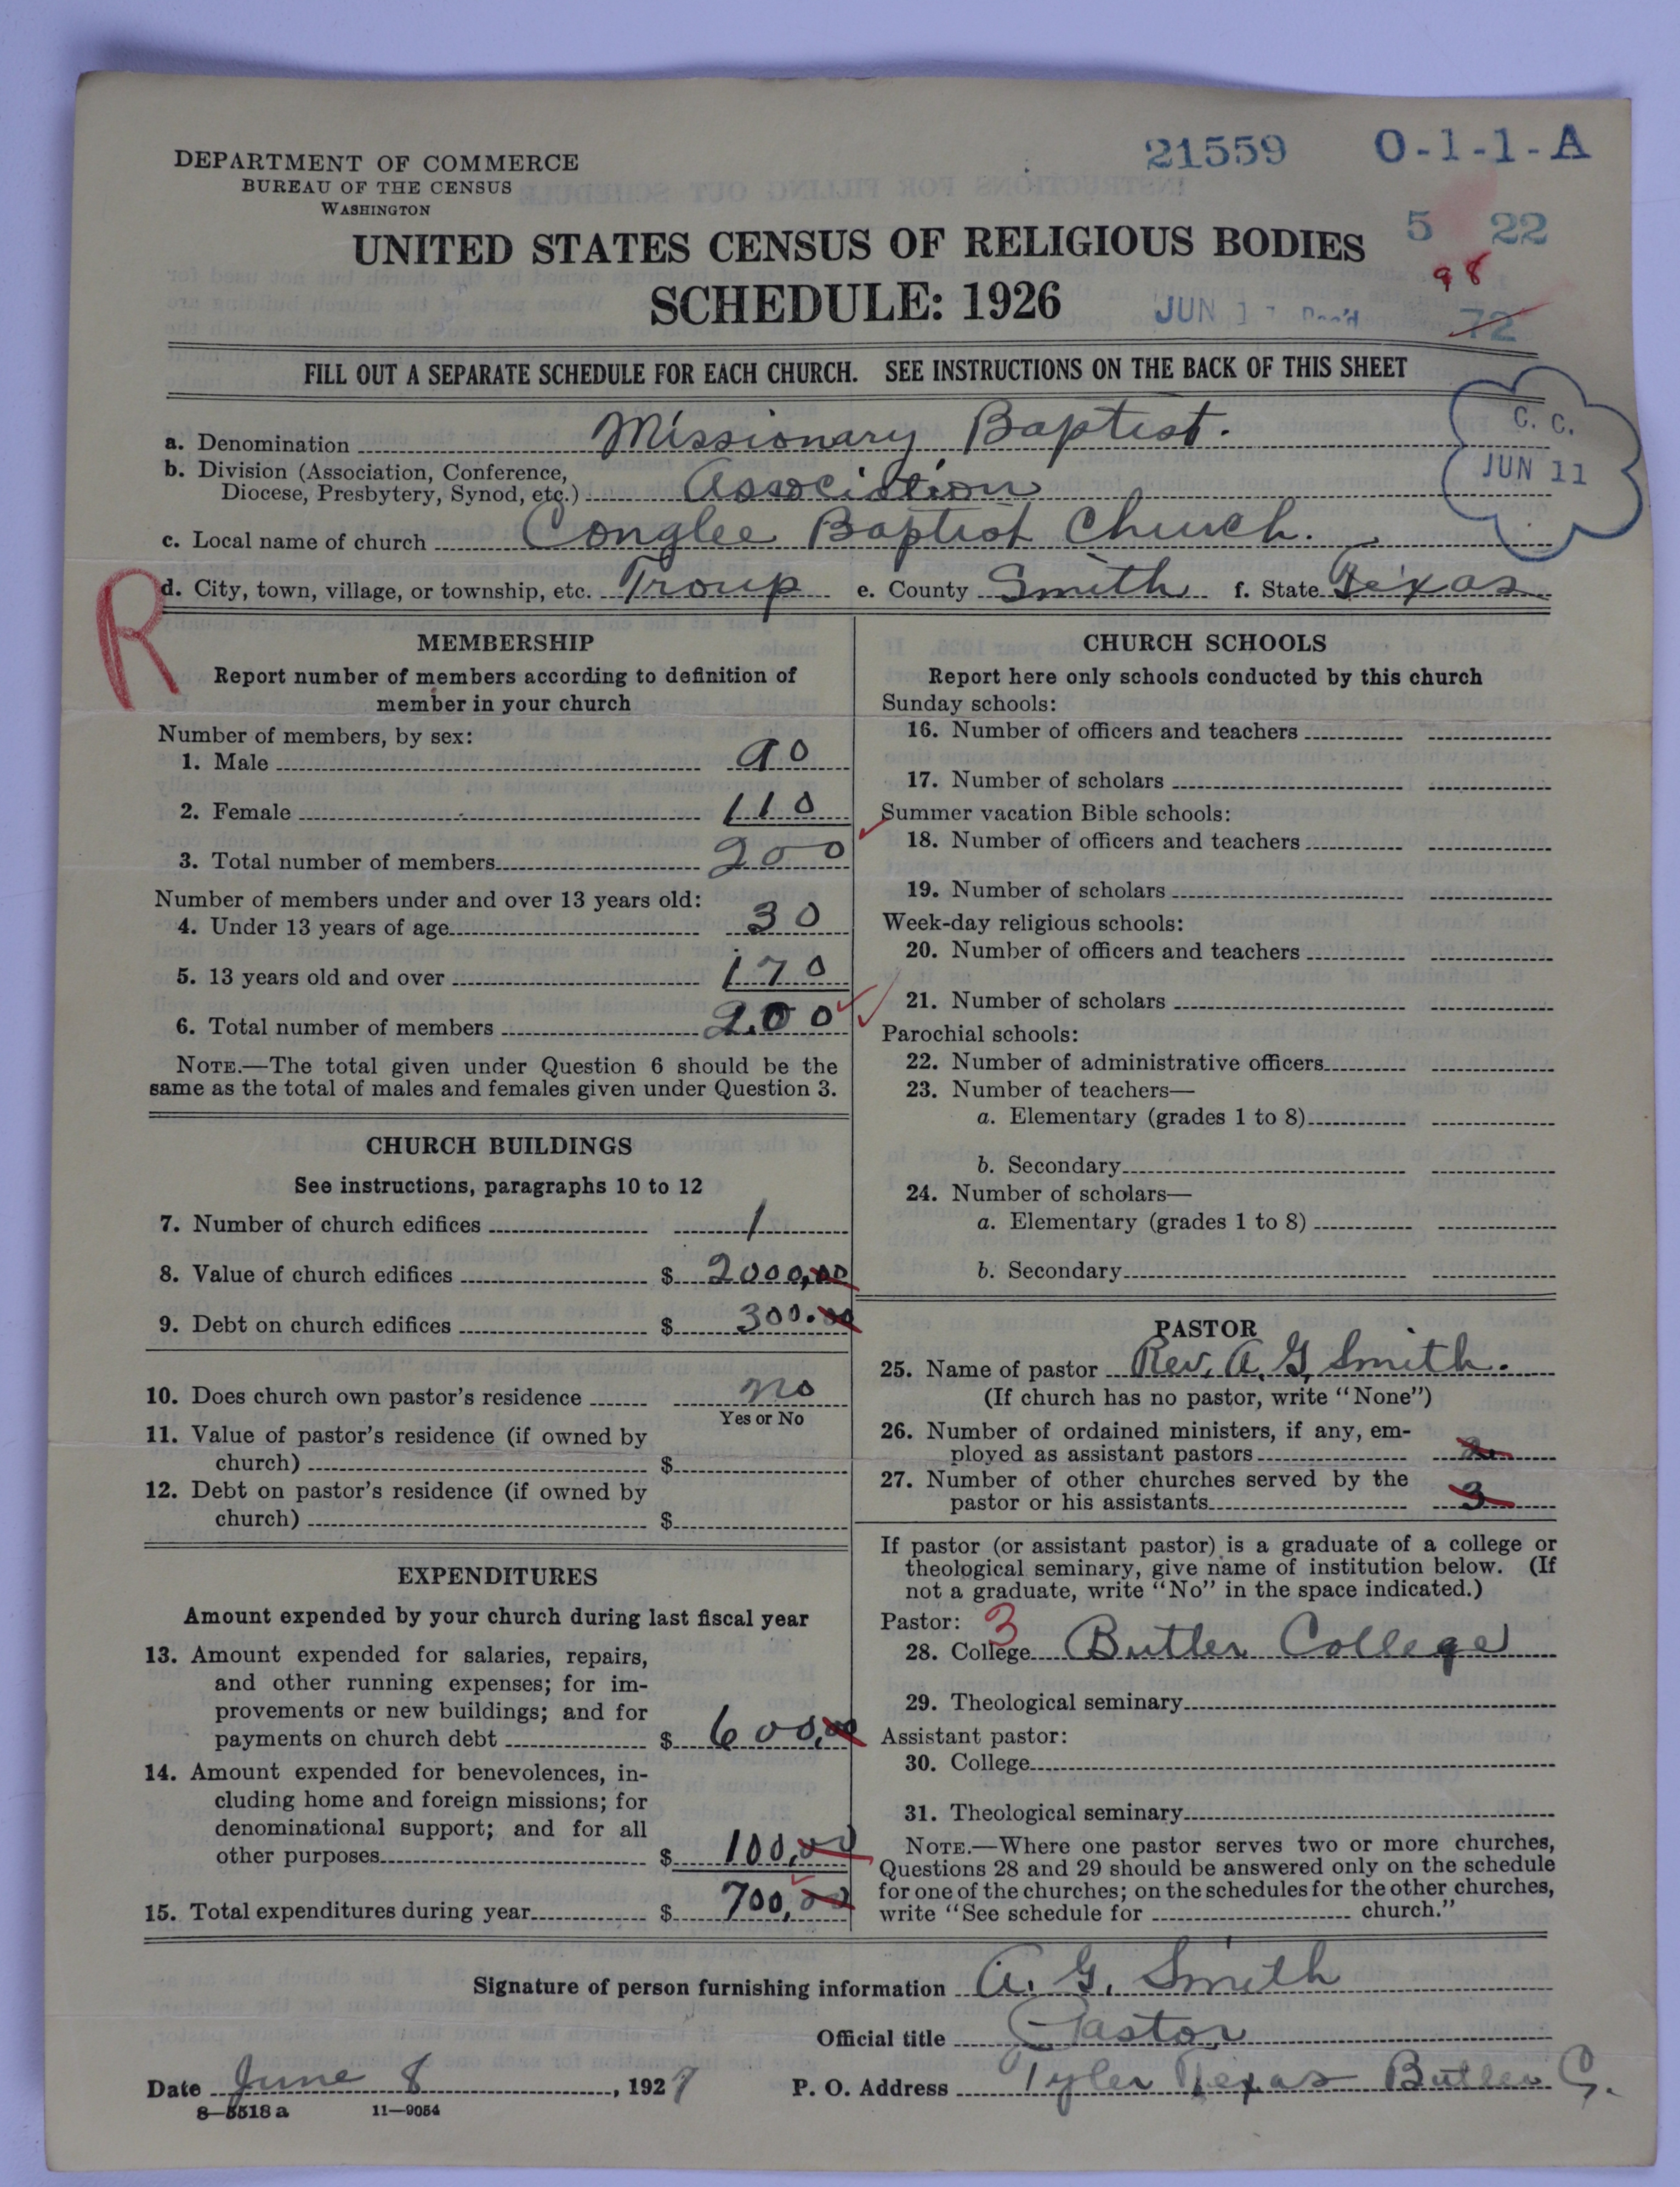 21559 0-1-1-A
DEPARTMENT OF COMMERCE
BUREAU OF THE CENSUS
WASHINGTON
5 22
UNITED STATES CENSUS OF RELIGIOUS BODIES
98
SCHEDULE: 1926
JUN 1 Rec'd 72
FILL OUT A SEPARATE SCHEDULE FOR EACH CHURCH. SEE INSTRUCTIONS ON THE BACK OF THIS SHEET
C. C.
JUN 11
a. Denomination Missionary Baptist.
b. Division (Association, Conference,
Diocese, Presbytery, Synod, etc.) Association
c. Local name of church Conglee Baptist Church.
d. City, town, village, or township, etc. Troup e. County Smith f. State Texas
R
MEMBERSHIP
Report number of members according to definition of
member in your church
Number of members, by sex:
1. Male 90
2. Female 110
3. Total number of members 200
Number of members under and over 13 years old:
4. Under 13 years of age 30
5. 13 years old and over 170
6. Total number of members 200
NOTE.—The total given under Question 6 should be the
same as the total of males and females given under Question 3.
CHURCH BUILDINGS
See instructions, paragraphs 10 to 12
7. Number of church edifices 1
8. Value of church edifices $ 2000,00
9. Debt on church edifices $ 300.00
10. Does church own pastor's residence no
Yes or No
11. Value of pastor's residence (if owned by
church) $
12. Debt on pastor's residence (if owned by
church) $
EXPENDITURES
Amount expended by your church during last fiscal year
13. Amount expended for salaries, repairs,
and other running expenses; for im-
provements or new buildings; and for
payments on church debt $ 600,00
14. Amount expended for benevolences, in-
cluding home and foreign missions; for
denominational support; and for all
other purposes $ 100,00
15. Total expenditures during year $ 700,00
CHURCH SCHOOLS
Report here only schools conducted by this church
Sunday schools:
16. Number of officers and teachers
17. Number of scholars
Summer vacation Bible schools:
18. Number of officers and teachers
19. Number of scholars
Week-day religious schools:
20. Number of officers and teachers
21. Number of scholars
Parochial schools:
22. Number of administrative officers
23. Number of teachers—
a. Elementary (grades 1 to 8)
b. Secondary
24. Number of scholars—
a. Elementary (grades 1 to 8)
b. Secondary
PASTOR
25. Name of pastor Rev. A. G. Smith.
(If church has no pastor, write "None")
26. Number of ordained ministers, if any, em-
ployed as assistant pastors 2
27. Number of other churches served by the
pastor or his assistants 3
If pastor (or assistant pastor) is a graduate of a college or
theological seminary, give name of institution below. (If
not a graduate, write "No" in the space indicated.)
Pastor: 3
28. College Butler College
29. Theological seminary
Assistant pastor:
30. College
31. Theological seminary
NOTE.—Where one pastor serves two or more churches,
Questions 28 and 29 should be answered only on the schedule
for one of the churches; on the schedules for the other churches,
write "See schedule for church."
Signature of person furnishing information A. G. Smith
Official title Pastor
Date June 8, 1927 P. O. Address Tyler Texas Butler C.
8-5518 a 11-9054